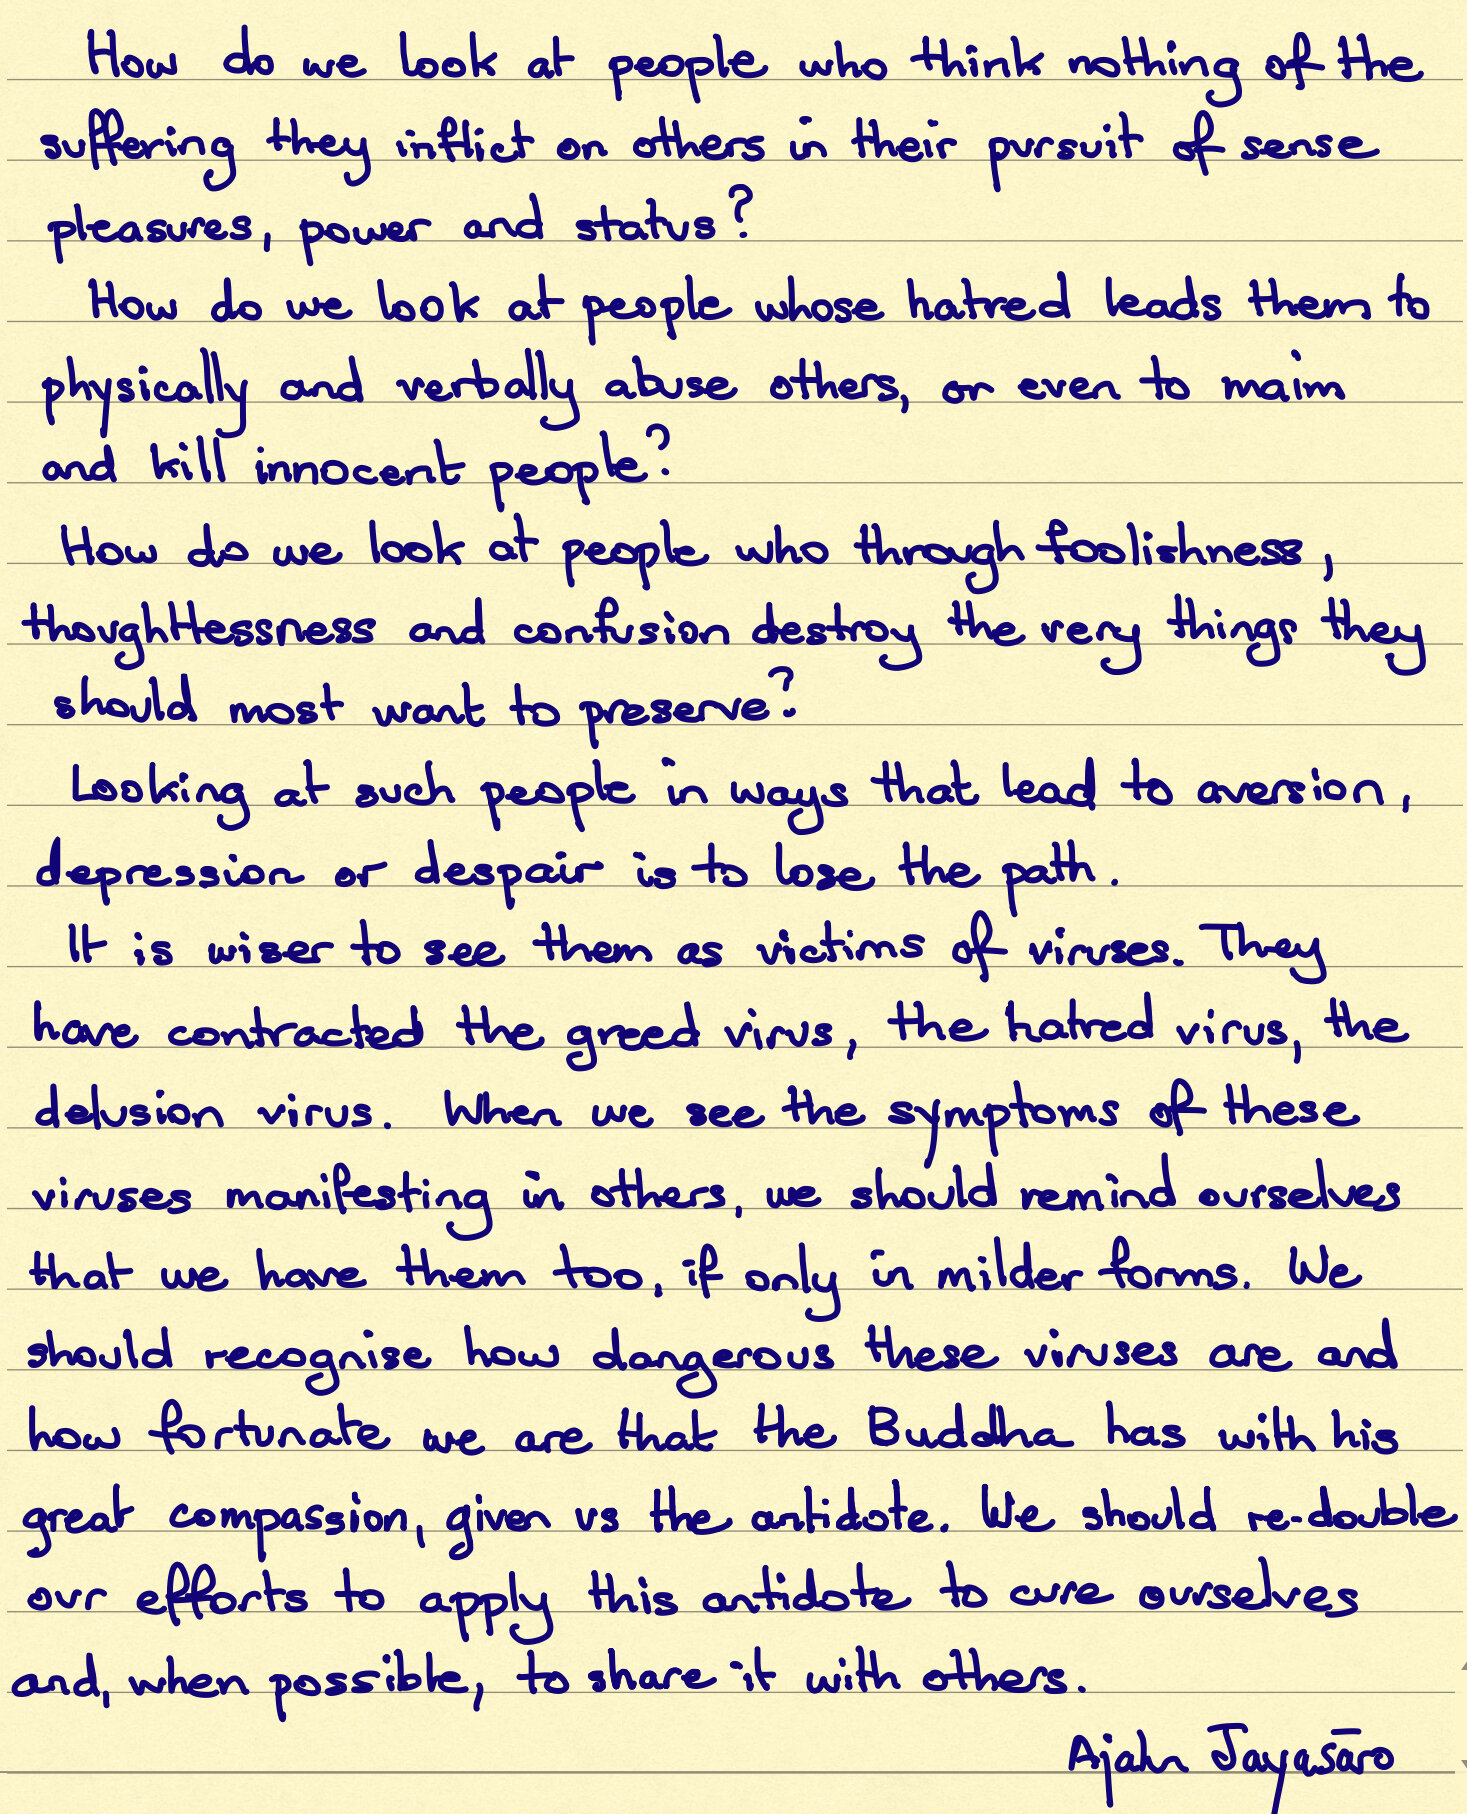 How do we look at people who think nothing of the
suffering they inflict on others in their pursuit of sense
pleasures, power and status?
How do we look at people whose hatred leads them to
physically and verbally abuse others, or even to maim
and kill innocent people?
How do we look at people who through foolishness,
thoughtlessness and confusion destroy the very things they
should most want to preserve?
Looking at such people in ways that lead to aversion,
depression or despair is to lose the path.
It is wiser to see them as victims of viruses. They
have contracted the greed virus, the hatred virus, the
delusion virus. When we see the symptoms of these
viruses manifesting in others, we should remind ourselves
that we have them too, if only in milder forms. We
should recognise how dangerous these viruses are and
how fortunate we are that the Buddha has with his
great compassion, given us the antidote. We should re-double
our efforts to apply this antidote to cure ourselves
and, when possible, to share it with others.
Ajahn Jayasāro